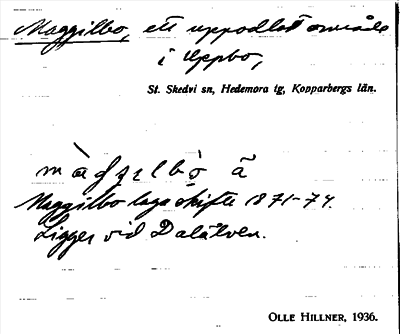 Maggilbo, ett uppodlat område
i Uppbo,
St. Skedvi sn, Hedemora tg, Kopparbergs län.
Maggilbo laga skifte 1871-74.
Ligger vid Dalälven.
OLLE HILLNER, 1936.